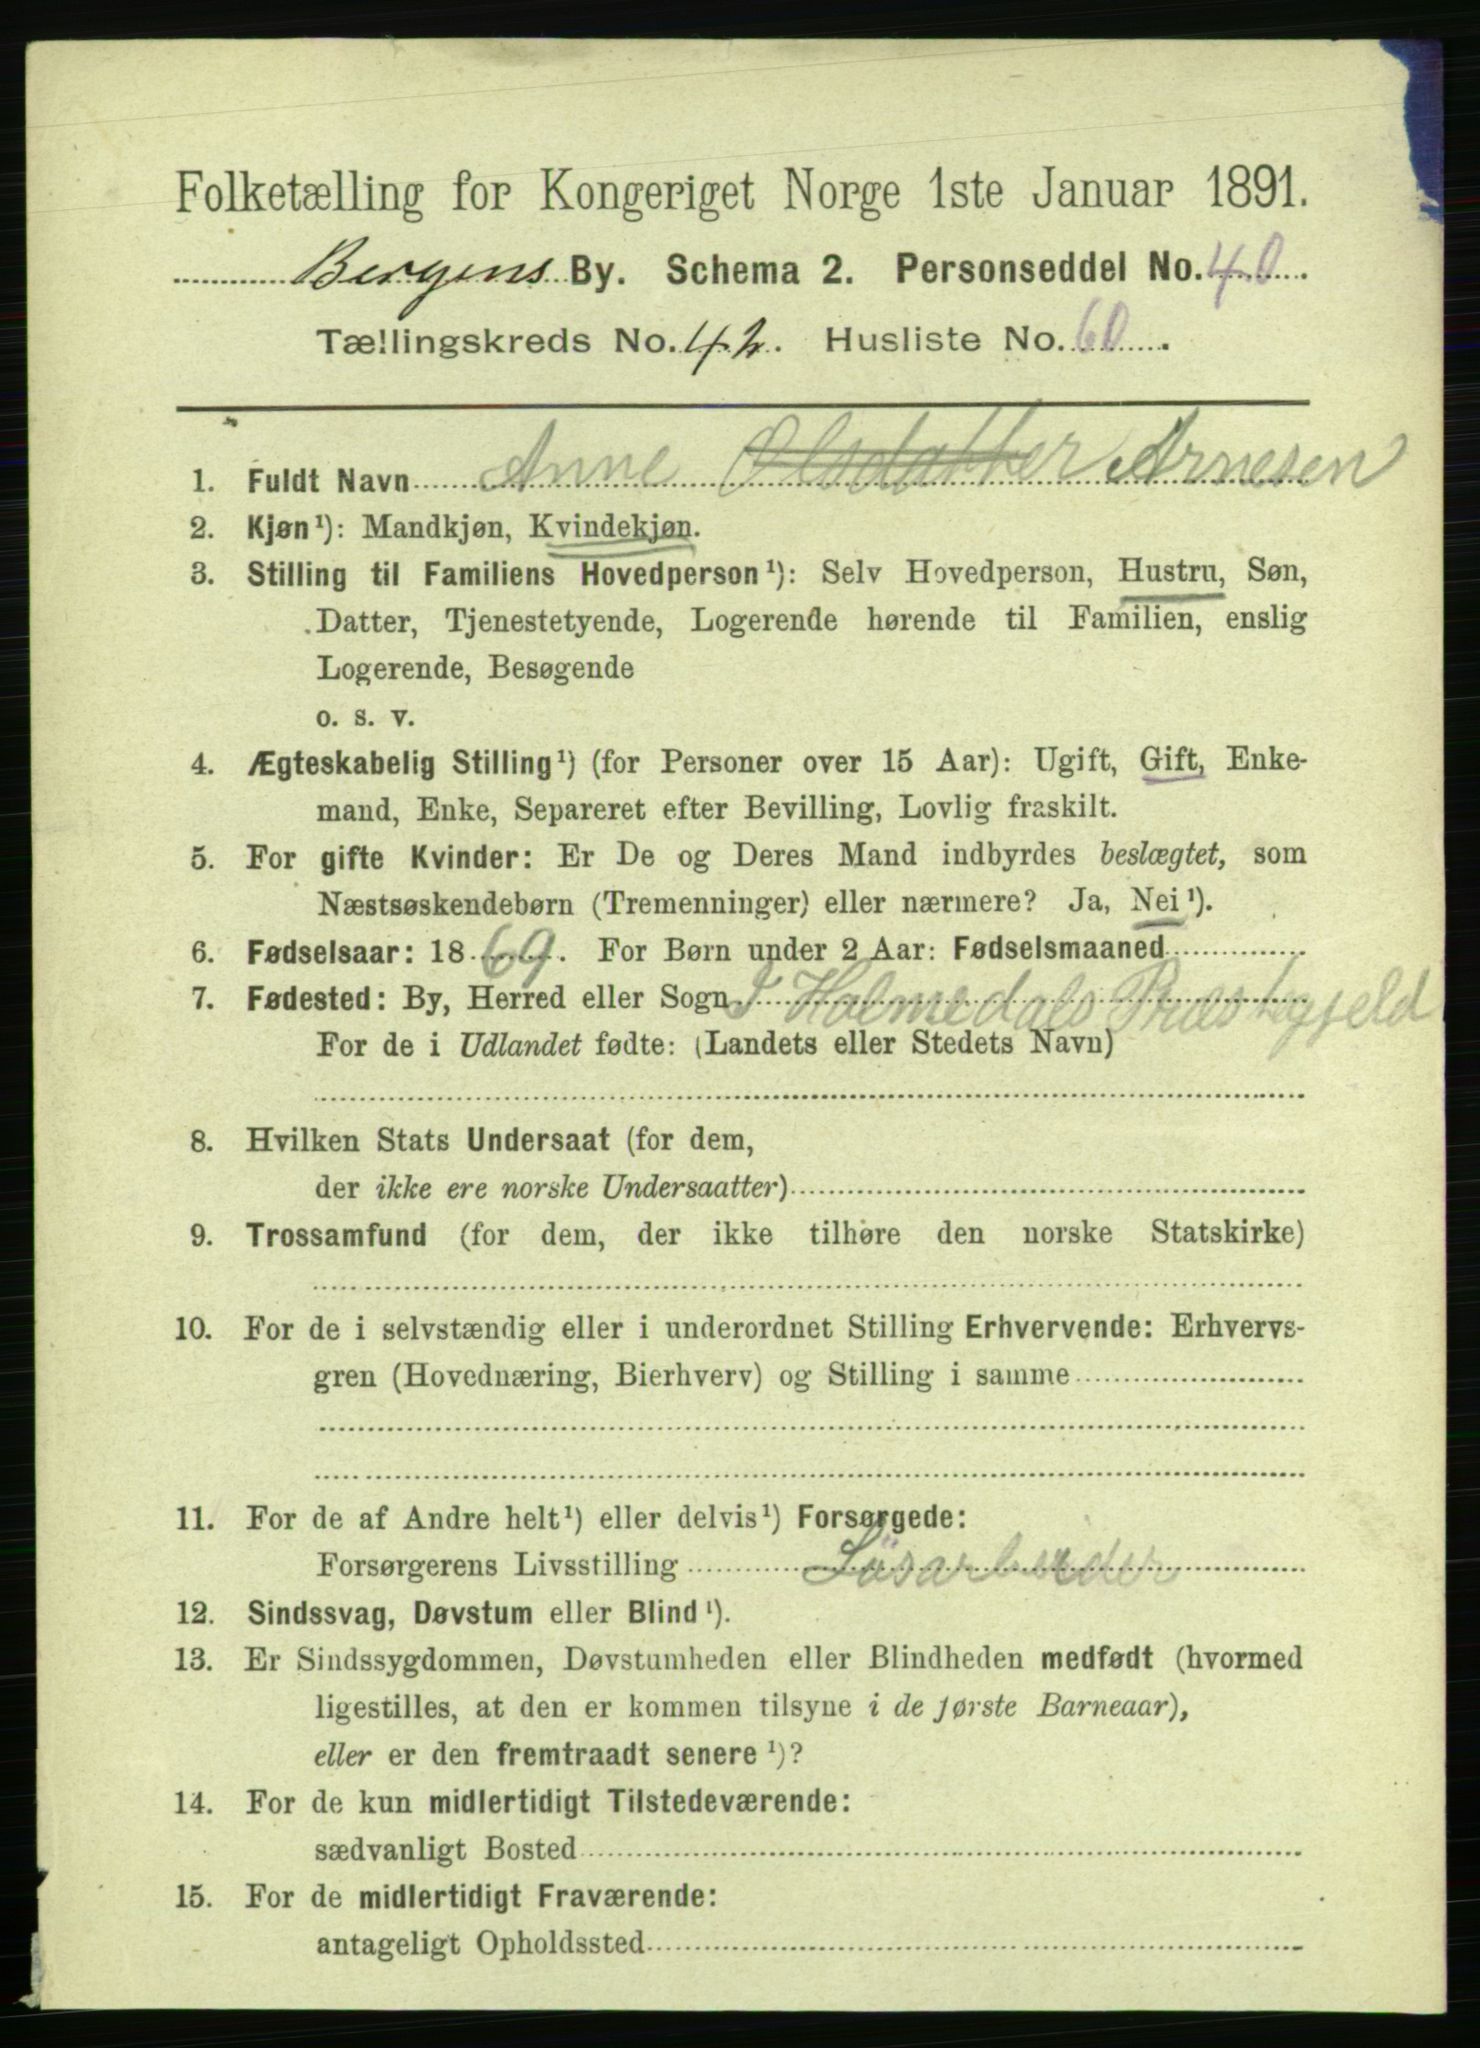 Folketælling for Kongeriget Norge 1ste Januar 1891.
Bergens By. Schema 2. Personseddel No. 40.
Tællingskreds No. 42. Husliste No. 60.
1. Fuldt Navn Anne Olsdatter Arnesen
2. Kjøn¹): Mandkjøn, Kvindekjøn.
3. Stilling til Familiens Hovedperson¹): Selv Hovedperson, Hustru, Søn,
Datter, Tjenestetyende, Logerende hørende til Familien, enslig
Logerende, Besøgende
o. s. v.
4. Ægteskabelig Stilling¹) (for Personer over 15 Aar): Ugift, Gift, Enke-
mand, Enke, Separeret efter Bevilling, Lovlig fraskilt.
5. For gifte Kvinder: Er De og Deres Mand indbyrdes beslægtet, som
Næstsøskendebørn (Tremenninger) eller nærmere? Ja, Nei¹).
6. Fødselsaar: 1869. For Børn under 2 Aar: Fødselsmaaned
7. Fødested: By, Herred eller Sogn I Holmedals Præstegjeld
For de i Udlandet fødte: (Landets eller Stedets Navn)
8. Hvilken Stats Undersaat (for dem,
der ikke ere norske Undersaatter)
9. Trossamfund (for dem, der ikke tilhøre den norske Statskirke)
10. For de i selvstændig eller i underordnet Stilling Erhvervende: Erhvervs-
gren (Hovednæring, Bierhverv) og Stilling i samme
11. For de af Andre helt¹) eller delvis¹) Forsørgede:
Forsørgerens Livsstilling Løsarbeider
12. Sindssvag, Døvstum eller Blind¹).
13. Er Sindssygdommen, Døvstumheden eller Blindheden medfødt (hvormed
ligestilles, at den er kommen tilsyne i de første Barneaar),
eller er den fremtraadt senere¹)?
14. For de kun midlertidigt Tilstedeværende:
sædvanligt Bosted
15. For de midlertidigt Fraværende:
antageligt Opholdssted